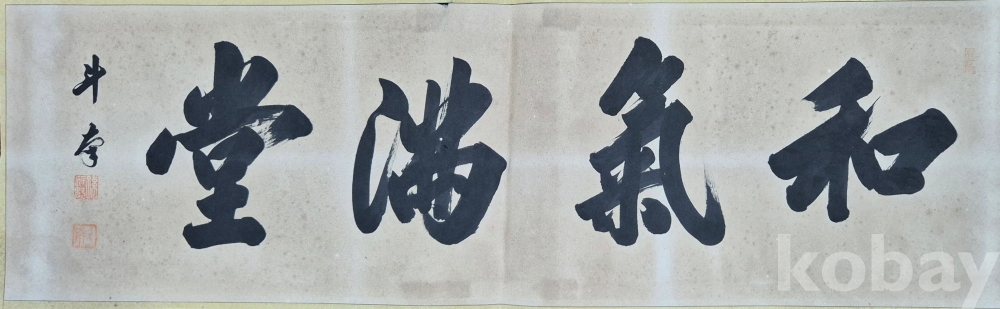 和氣滿堂
斗南
kobay